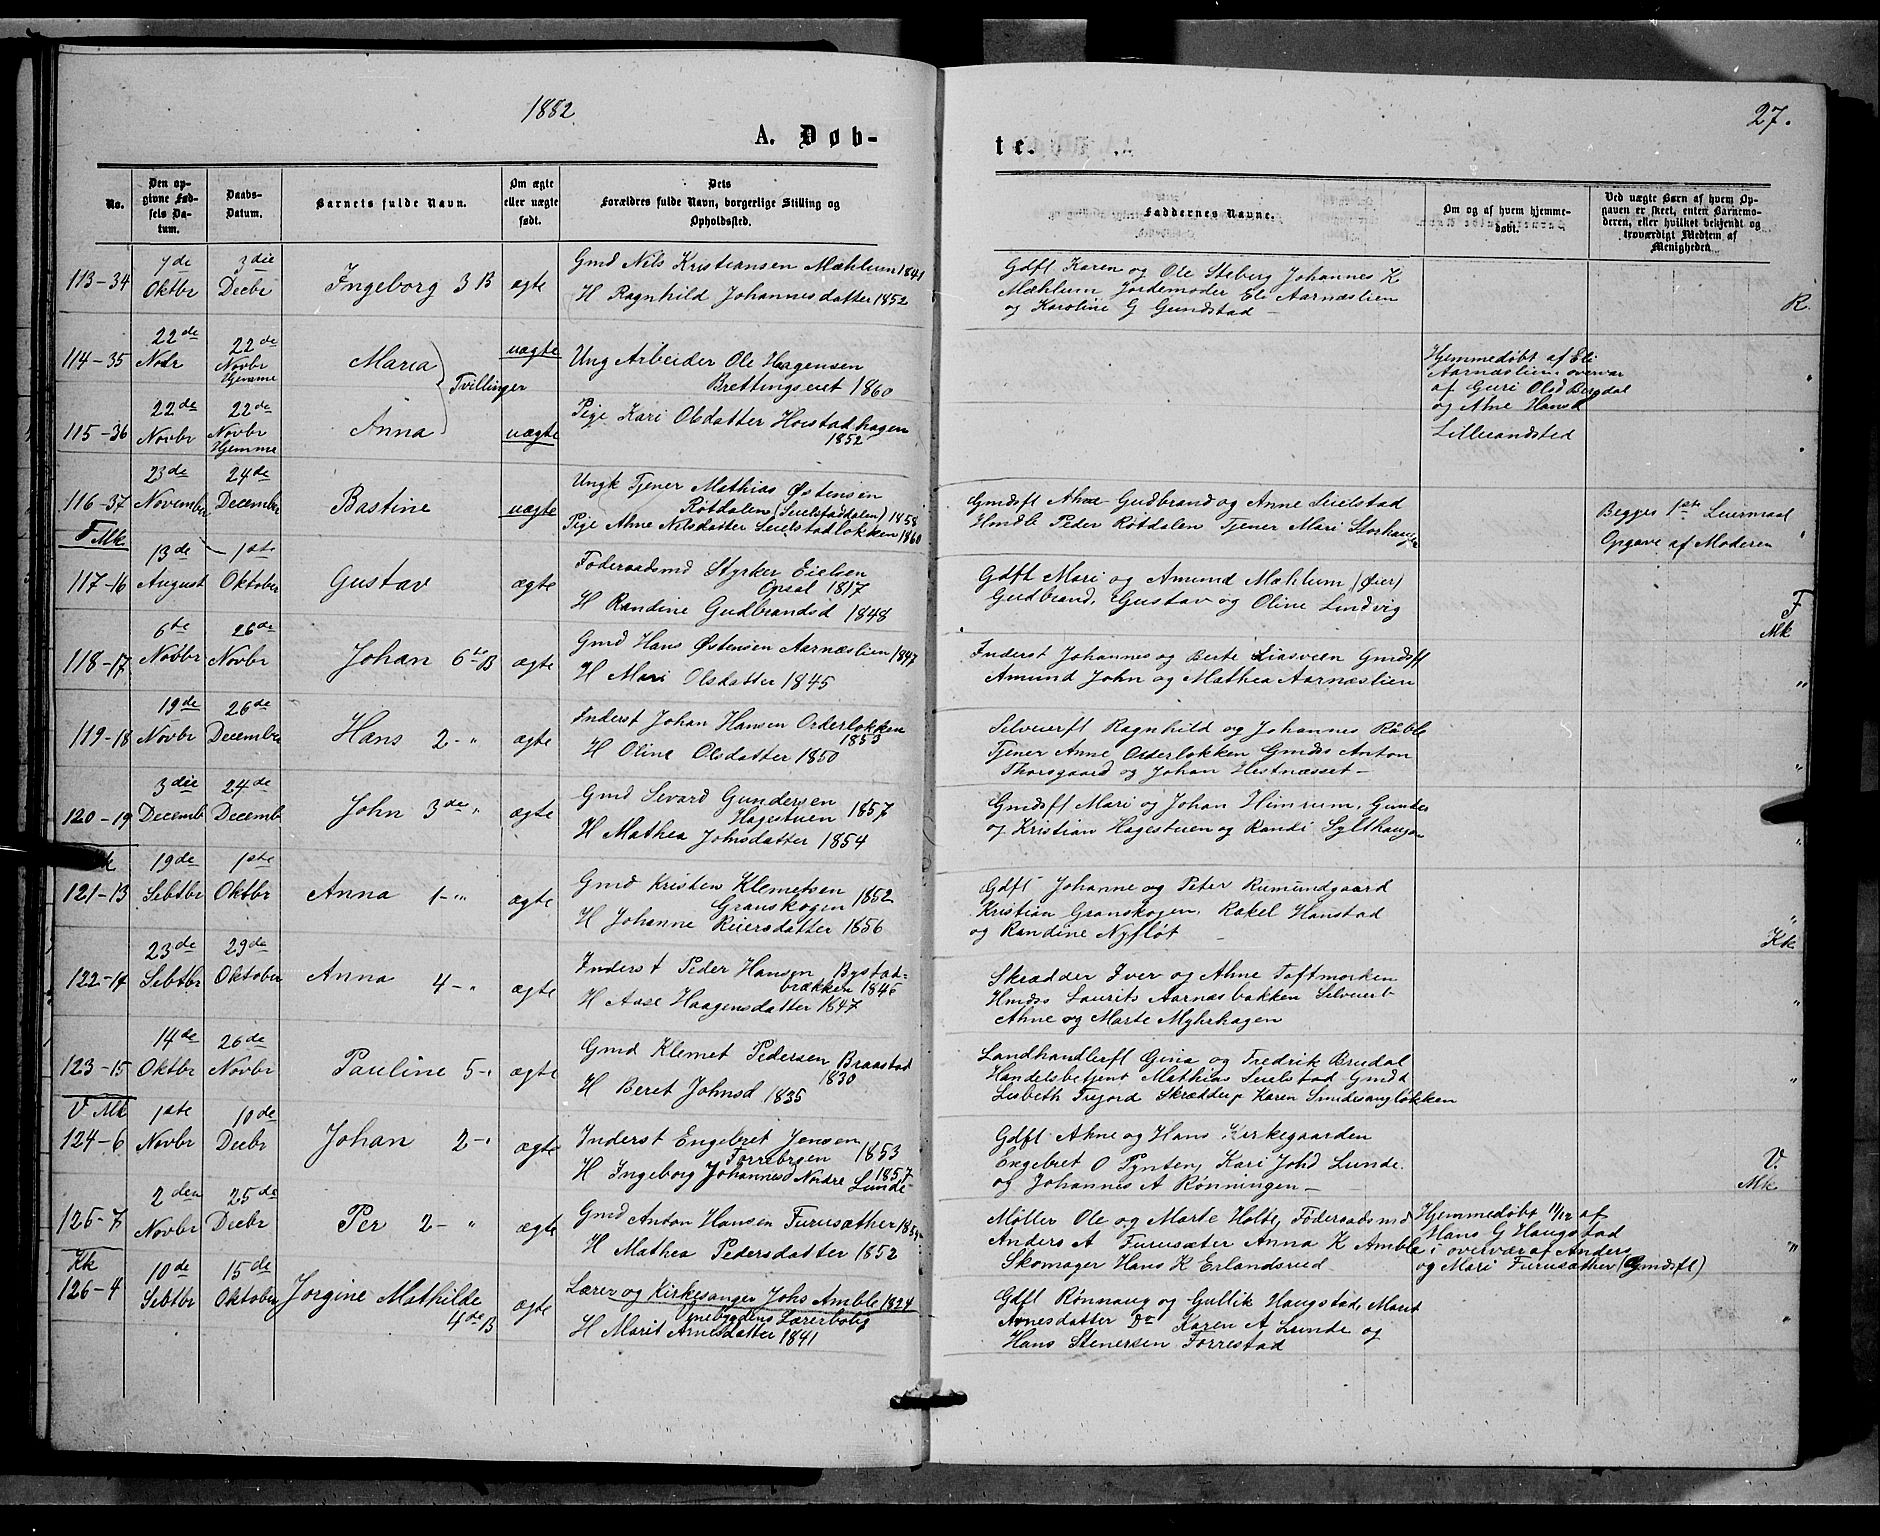 1882
27.
A. Døb-
te.
No.
Den op-
givne Fød-
sels Da-
tum.
Daabs-
Datum.
Barnets fulde Navn.
Om ægte
eller uægte
født.
Dets
Forældres fulde Navn, borgerlige Stilling og
Opholdssted.
Faddernes Navne.
Om og af hvem hjemme-
døbt.
Ved uægte Børn af hvem Op-
gaven er skeet, enten Barnemo-
deren, eller hvilket bekjendt og
troværdigt Medlem af
Menigheden.
113-34
7de
Oktbr
3die
Decbr
Ingeborg 3 B
ægte
Gmd Nils Kristiansen Mæhlum 1841
H Ragnhild Johannesdatter 1852
Gdft Karen og Ole Steberg Johannes K
Mæhlum Jordemoder Eli Aarnæslien
og Karoline G Gundstad –
R.
114-35
22de
Novbr
22de
Novbr
Hjemme
Maria
Tvillinger
uægte
Ung Arbeider Ole Haagensen
Brettingseiet 1860
Hjemmedøbt af Eli
Aarnæslien overvær
af Guri Olsd Bergdal
og Ahne Hansd
Lillerandsted
115-36
22de
Novbr
22de
Novbr
Hjemme
Anna
uægte
Pige Kari Olsdatter Horstadhagen
1852
116-37
23de
November
24de
December
Bastine
uægte
Ungk Tjener Mathias Østensen
Røtdalen (Seielstaddalen) 1858
Pige Ahne Nilsdatter Seielstadløkken 1860
Gmdsft Ahne Gudbrand og Anne Seielstad
Hmdb Peder Røtdalen Tjener Mari Storhaugen
Begges 1ste Leiermaal
Opgave af Moderen
F Mk.
117-16
13de
August
1ste
Oktober
Gustav
ægte
Føderaadsmd Styrker Eielsen
Opsal 1817
H Randine Gudbrandsd 1848
Gdft Mari og Amund Mæhlum (Øier)
Gudbrand, Gustav og Oline Lundvig
F
Mk
118-17
6te
Novbr
26de
Novbr
Johan 6te B
ægte
Gmd Hans Østensen Aarnæslien 1847
H Mari Olsdatter 1845
Inderst Johannes og Berte Liasveen Gmdsft
Amund John og Mathea Aarnæslien
"
119-18
19de
Novbr
26de
December
Hans 2- "
ægte
Inderst Johan Hansen Orderløkken
1853
H Oline Olsdatter 1850
Selveierft Ragnhild og Johannes Røbbe
Tjener Anne Orderløkken Gmds Anton
Thorsgaard og Johan Hestnæsset –
"
120-19
3die
Decemb
24de
Decemb
John 3de "
ægte
Gmd Sevard Gundersen
Hagestuen 1857
H Mathea Johnsdatter 1854
Gmdsft Mari og Johan Himrum, Gunder
og Kristian Hagestuen og Randi Sylthaugen
"
121-13
19de
Sebtbr
1ste
Oktbr
Anna 1- "
ægte
Gmd Kristen Klemetsen
Granskogen 1852
H Johanne Reiersdatter 1856
Gdft Johanne og Peter Rumundgaard
Kristian Granskogen, Rakel Haustad
og Randine Nyfløt –
"
Kk
122-14
23de
Sebtbr
29de
Oktober
Anna 4- "
ægte
Inderst Peder Hansen Bystad-
brækken 1845
H Aase Haagensdatter 1847
Skrædder Iver og Ahne Toftmorken
Hmds Laurits Aarnæsbakken Selveierb
Ahne og Marte Myhrhagen
"
123-15
14de
Oktbr
26de
Novbr
Pauline 5- "
ægte
Gmd Klemet Pedersen Braastad
1830
H Beret Johnsd 1835
Landhandlerft Gina og Fredrik Brudal
Handelsbetjent Mathias Seielstad Gmdd
Lisbeth Trejord Skrædderp Karen Smidesangløkken
"
V Mk
124-6
1ste
Novbr
10de
Decbr
Johan 2- "
ægte
Inderst Engebret Jensen
Forrebrgen 1853
H Ingeborg Johannesd Nordre 1857
Lunde
Gdft Ahne og Hans Kirkegaarden
Engebret O Pynten, Kari Johd Lunde.
og Johannes A Rønningen –
V.
Mk
125-7
2den
Novbr
25de
Decbr
Per 2- "
ægte
Gmd Anton Hansen Furusæther 1854
H Mathea Pedersdatter 1852
Møller Ole og Marte Holøe, Føderaadsmd
Anders A Furusæter Anna K Amble
Skomager Hans K Erlandsrud –
Hjemmedøbt 11/12 af
Hans G Haugstad
i overvær af Anders
og Mari Furusæther (Gmdsft)
"
Kk
126-4
10de
Sebtbr
15de
Oktober
Jorgine Mathilde
4de B
ægte
Lærer og Kirkesanger Johs Amble 1824
Øvrebygdens Lærerbolig
H Marit Arnesdatter 1841
Gdft Rønnaug og Gullik Haugstad, Marit
Arnesdatter Do Karen A Lunde og
Hans Stenersen Forrestad
"